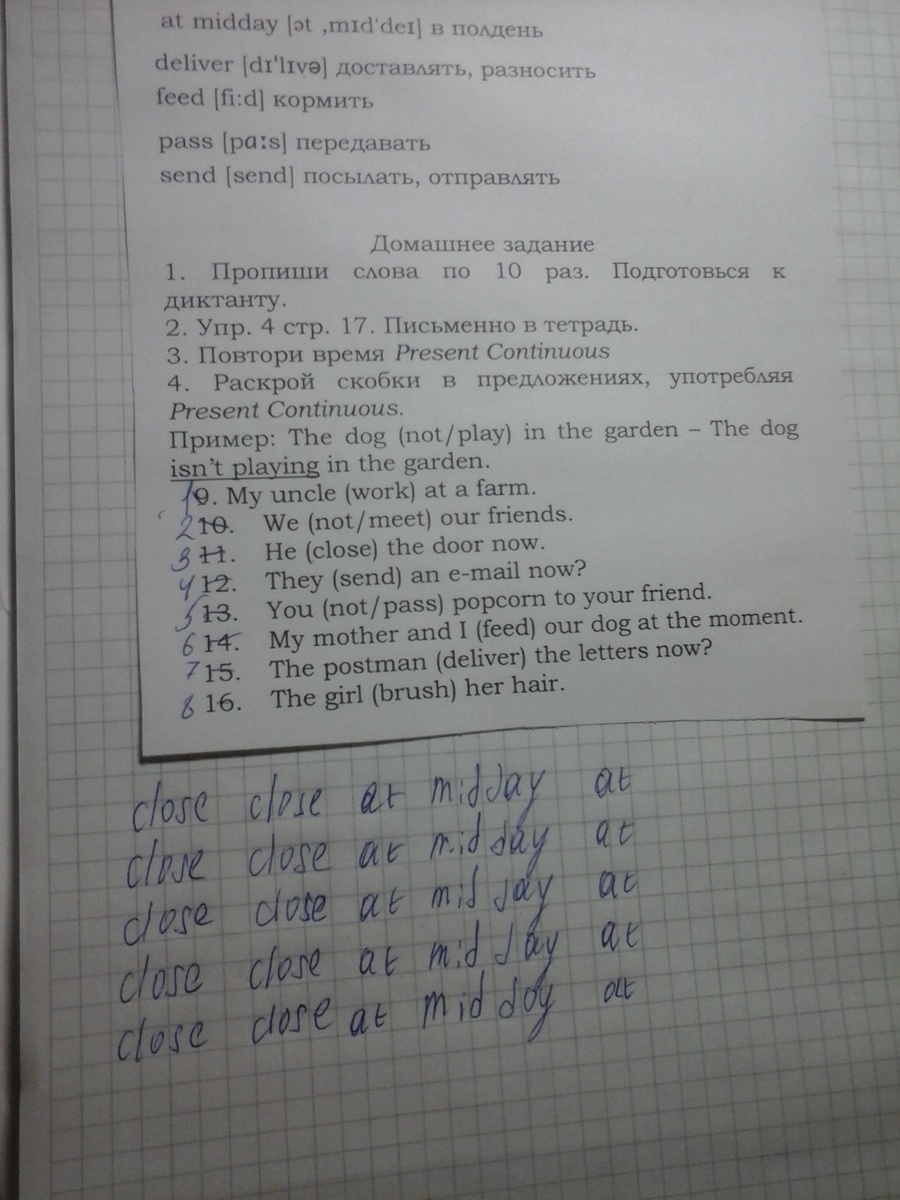 at midday [ət ˌmɪd'deɪ] в полдень
deliver [dɪ'lɪvə] доставлять, разносить
feed [fi:d] кормить
pass [pɑːs] передавать
send [send] посылать, отправлять
Домашнее задание
1. Пропиши слова по 10 раз. Подготовься к
диктанту.
2. Упр. 4 стр. 17. Письменно в тетрадь.
3. Повтори время Present Continuous
4. Раскрой скобки в предложениях, употребляя
Present Continuous.
Пример: The dog (not/play) in the garden – The dog
isn't playing in the garden.
1 9. My uncle (work) at a farm.
2 10. We (not/meet) our friends.
3 11. He (close) the door now.
4 12. They (send) an e-mail now?
5 13. You (not/pass) popcorn to your friend.
6 14. My mother and I (feed) our dog at the moment.
7 15. The postman (deliver) the letters now?
8 16. The girl (brush) her hair.
close close at midday at
close close at midday at
close close at midday at
close close at midday at
close close at midday at